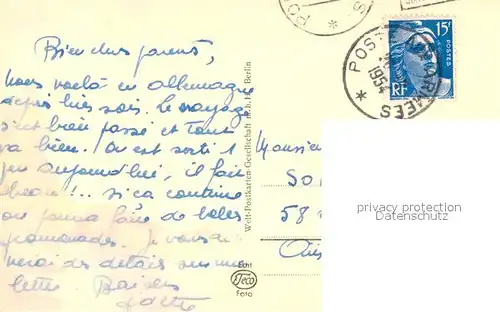 Bien chers parents,
nous voilà en allemagne
depuis hier soir. Le voyage
s'est bien passé et tout
va bien. On est sorti 1
peu aujourd'hui, il fait
beau!.. si ça continue
on pourra faire de belles
promenades. Je vous
des détails sur une
lettre. Baisers
Welt-Postkarten-Gesellschaft m.b.H., Berlin
Echt
Foto
Monsieur
SO
58
15F
POSTES
RF
POSTE AUX ARMEES
1954
privacy protection
Datenschutz